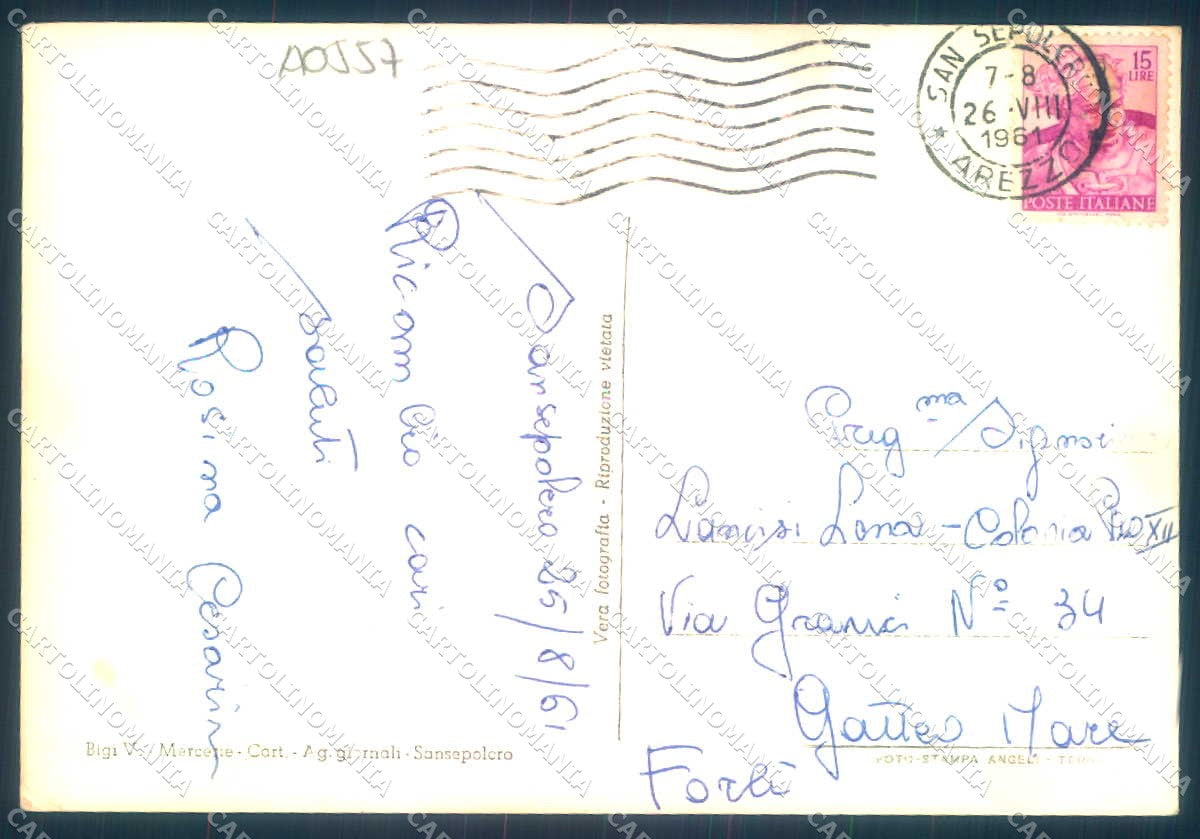 A0557
SAN SEPOLCRO
7-8
26·VIII
1961
* AREZZO *
15
LIRE
POSTE ITALIANE
Sansepolcro 25/8/61
Ricambio cari
saluti
Rosina Cesarini
Vera fotografia - Riproduzione vietata
Preg ma Signori
Lona - Colonia Pio XII
Via Nº 34
Gatteo Mare
Forlì
Bigi V. / Mercerie - Cart. - Ag. giornali - Sansepolcro
FOTO-STAMPA ANGELI - TERNI
CARTOLINOMANIA